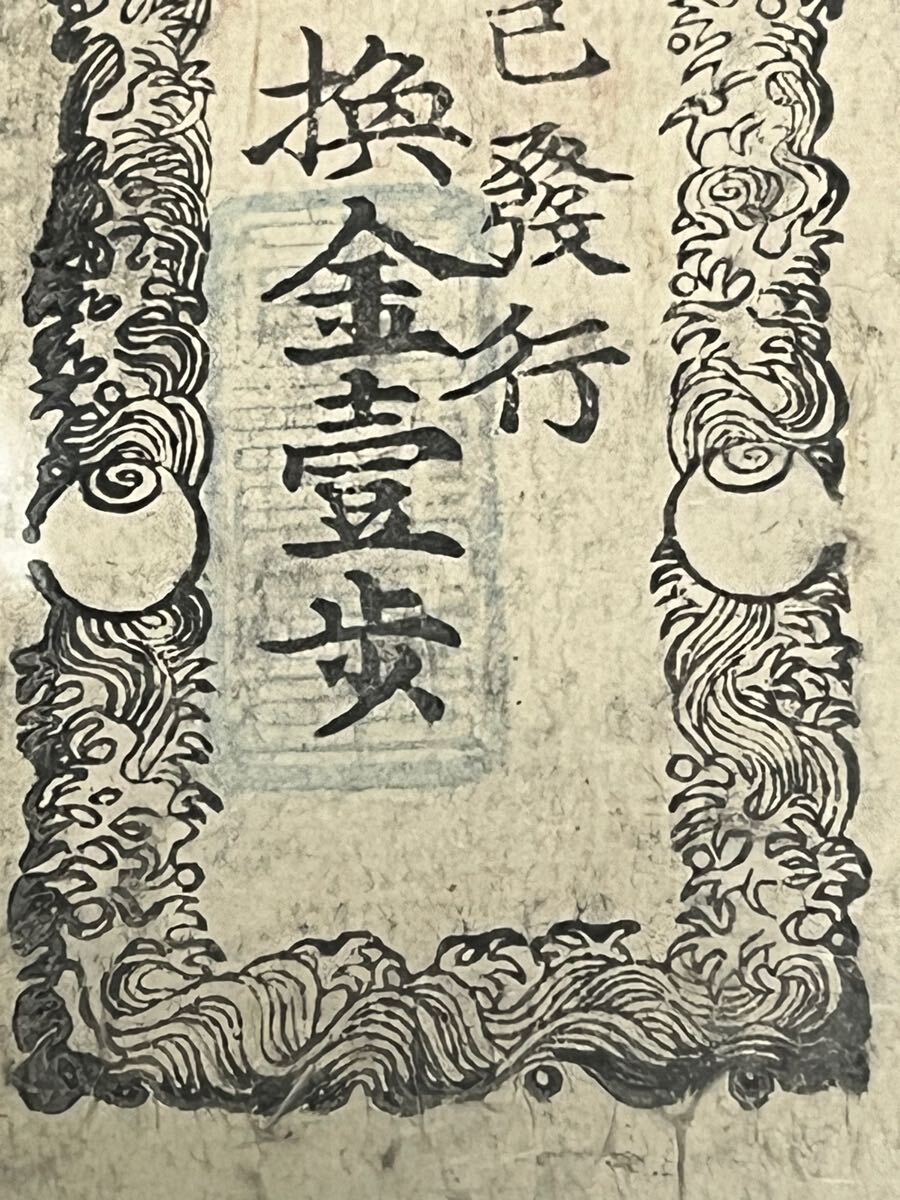 巳發行
換金壹歩